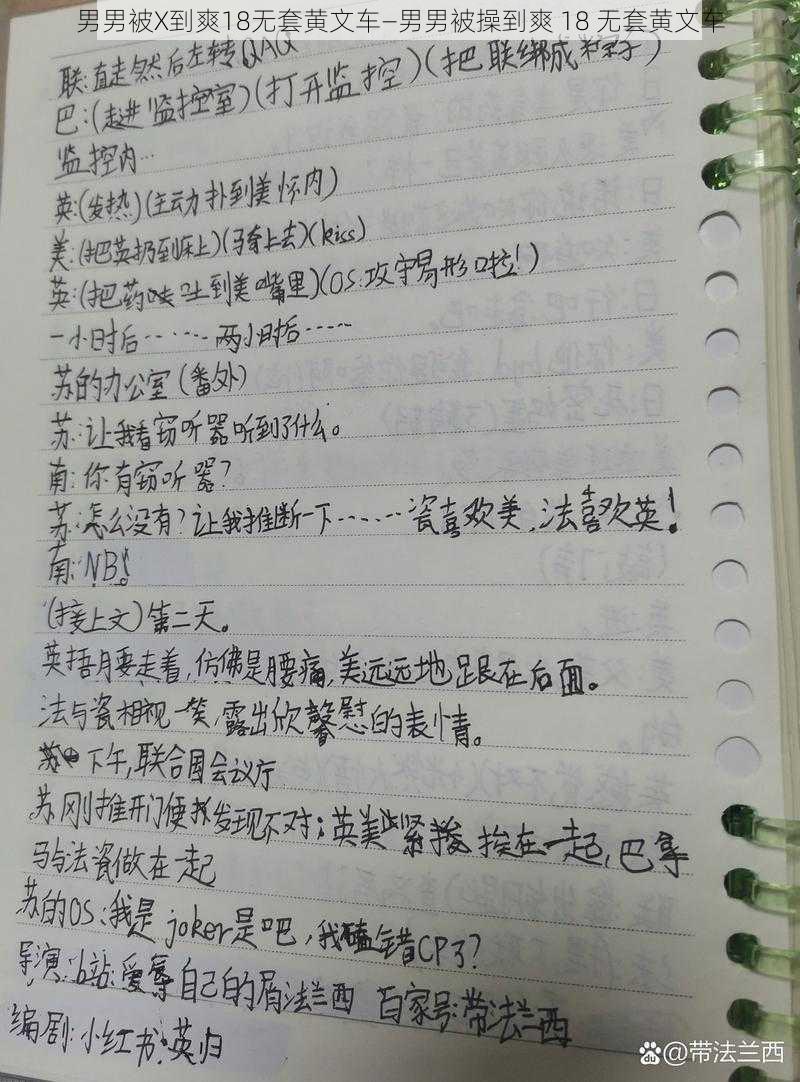 男男被X到爽18无套黄文车—男男被操到爽 18 无套黄文车
联:直走然后左转QAQ
巴:(走进监控室)(打开监控)(把联绑成粽子)
监控内…
英:(发热)(主动扑到美怀内)
美:(把英扔到床上)(骑上去)(kiss)
英:(把药吐到美嘴里)(OS:攻守易形啦!)
一小时后……两小时后……
苏的办公室(番外)
苏:让我看窃听器听到了什么。
南:你有窃听器?
苏:怎么没有?让我推断一下……瓷喜欢美,法喜欢英!
南:NB!
(接上文)第二天。
英捂腰走着,仿佛是腰痛,美远远地跟在后面。
法与瓷相视一笑,露出欣慰的表情。
下午,联合国会议厅
苏刚推开门便发现不对:英美紧挨在一起,巴拿
马与法瓷做在一起
苏的OS:我是joker是吧,我磕错CP了?
导演:b站:爱辱自己的屑法兰西 百家号:带法兰西
编剧:小红书:英归
@带法兰西